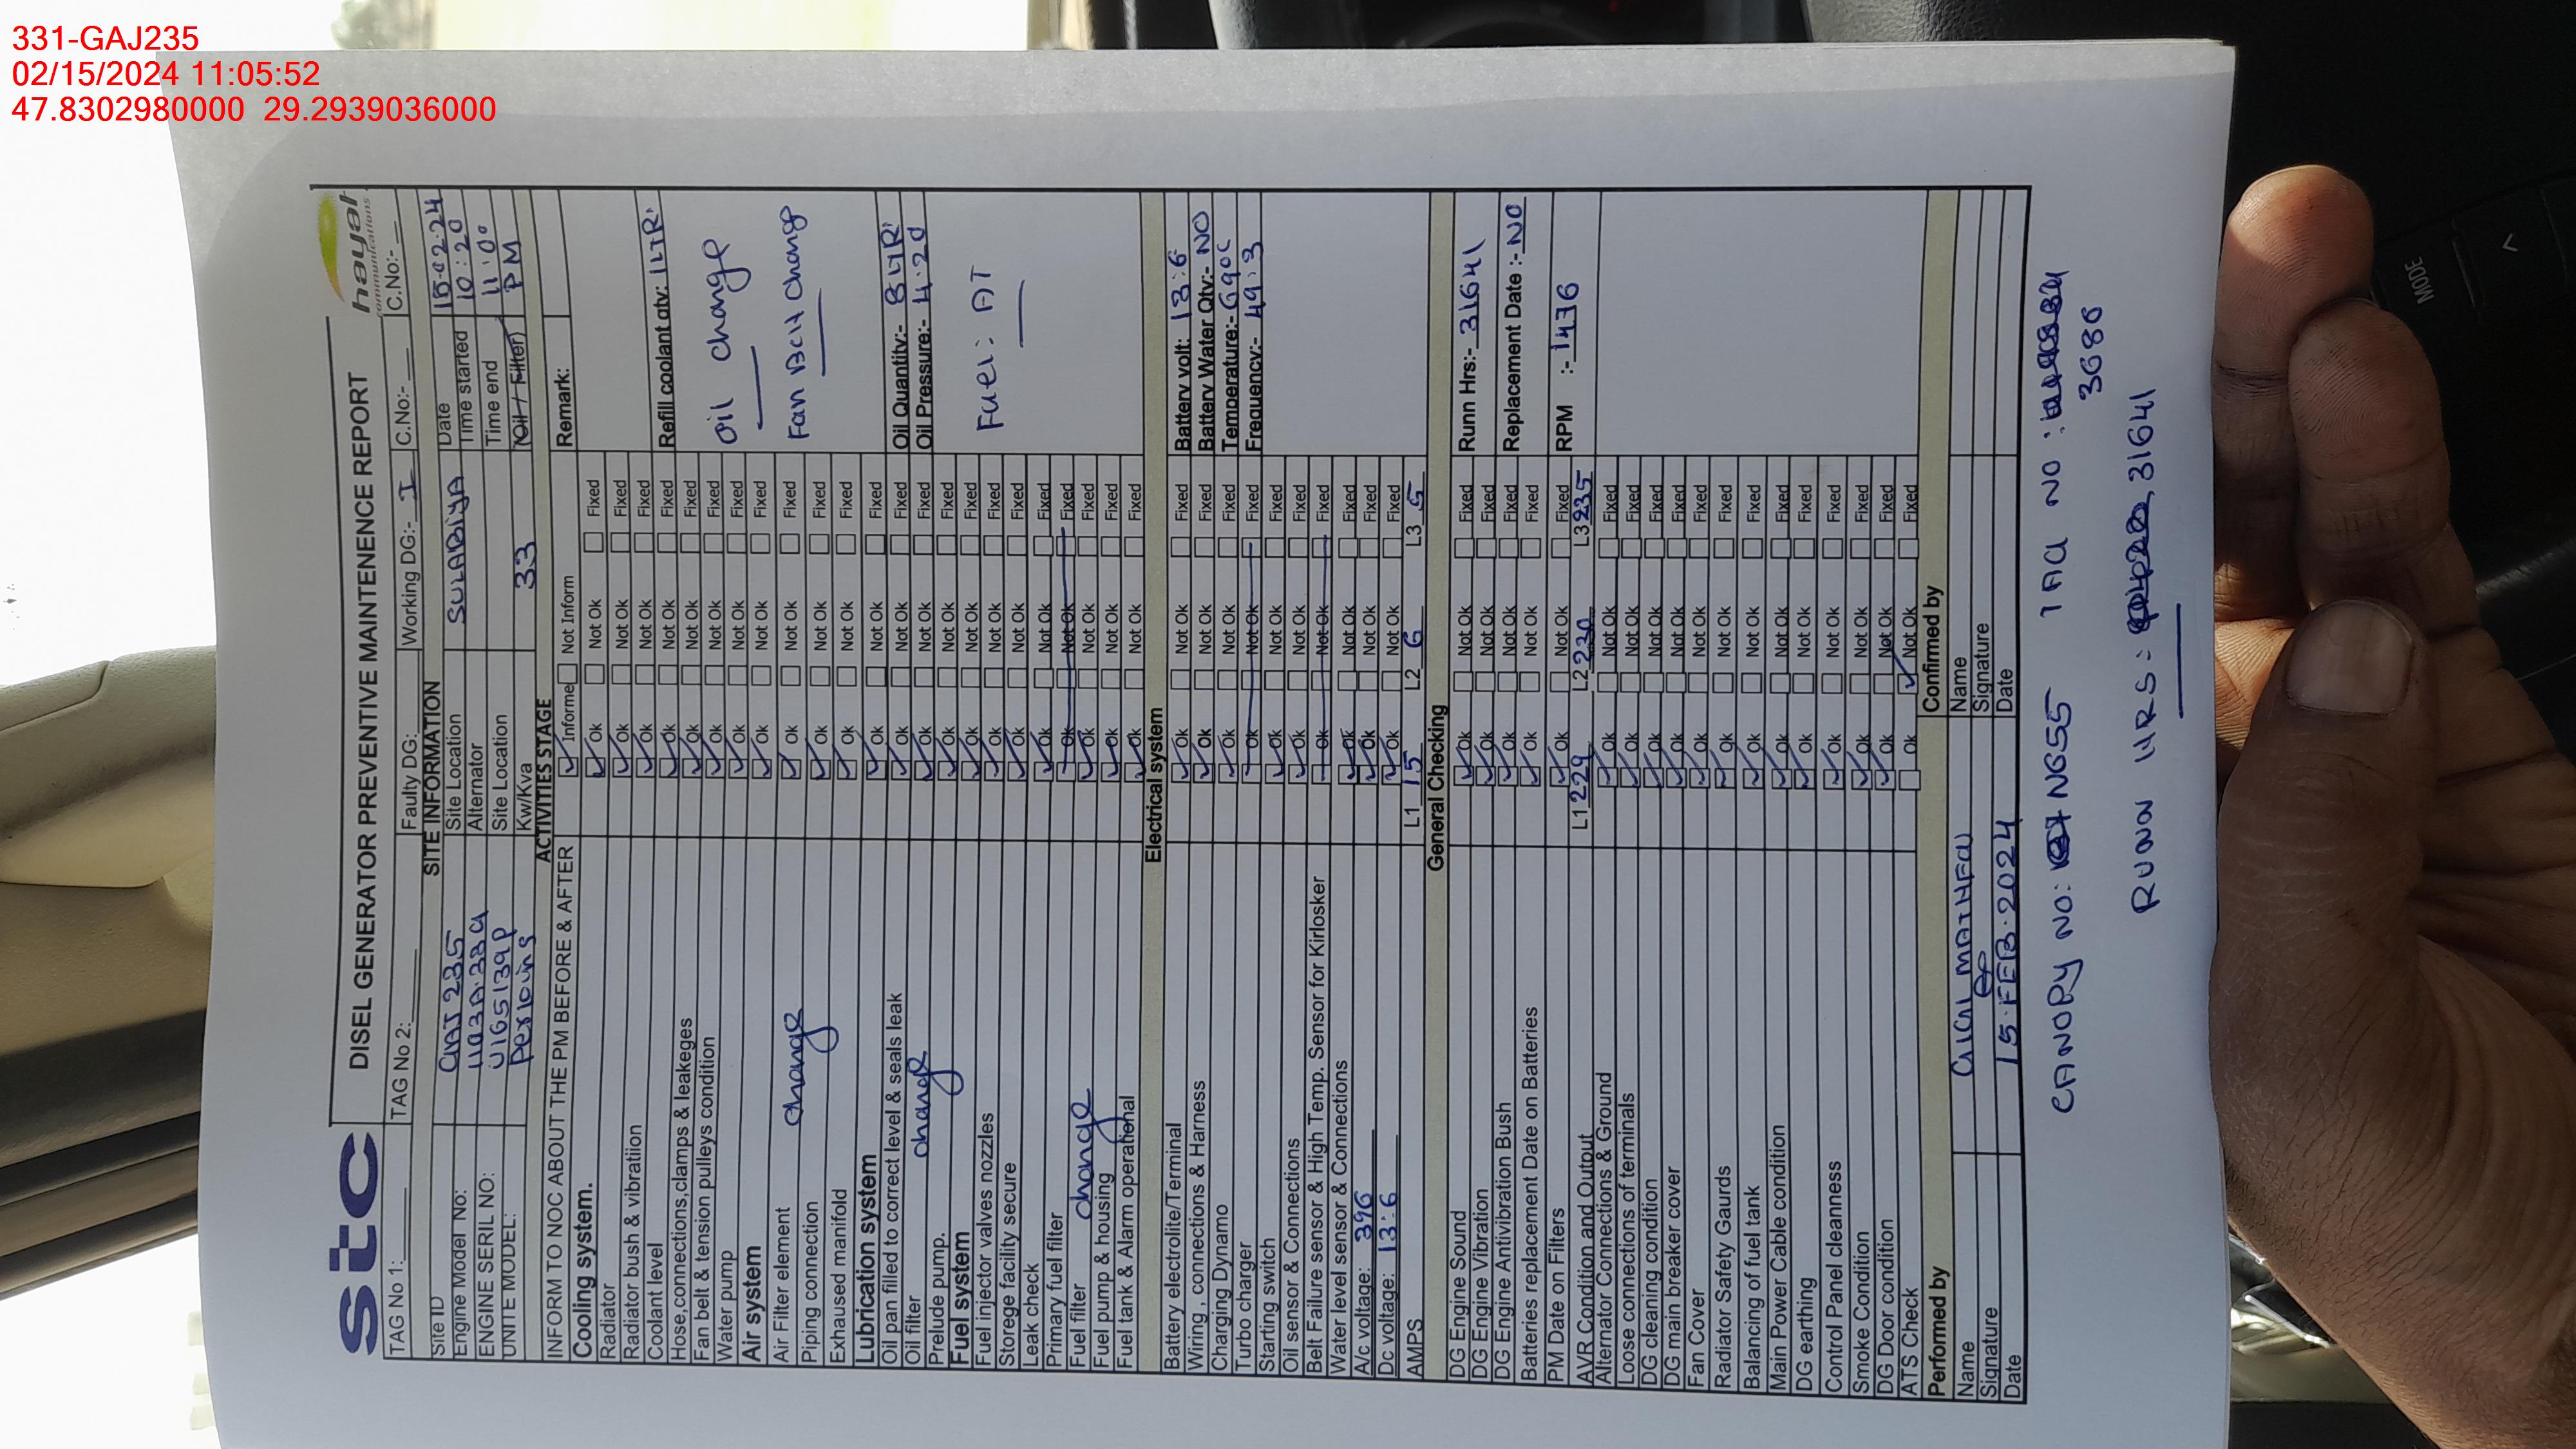 331-GAJ235
02/15/2024 11:05:52
47.8302980000 29.2939036000
stc
DISEL GENERATOR PREVENTIVE MAINTENENCE REPORT
hayat
communications
TAG No 1: TAG No 2: Faulty DG: Working DG:- I C.No:- C.No:-
SITE INFORMATION
Site ID GAJ 235 Site Location SULABIYA Date 15-02-24
Engine Model No: 1103A.33G Alternator Time started 10:20
ENGINE SERIL NO: U165139P Site Location Time end 11:00
UNITE MODEL: Perkins Kw/Kva 33 (Oil / Filter) PM
ACTIVITIES STAGE
INFORM TO NOC ABOUT THE PM BEFORE & AFTER Informe Not Inform Remark:
Cooling system.
Radiator Ok Not Ok Fixed
Radiator bush & vibratiion Ok Not Ok Fixed
Coolant level Ok Not Ok Fixed Refill coolant qty: 1LTR
Hose,connections,clamps & leakeges Ok Not Ok Fixed
Fan belt & tension pulleys condition Ok Not Ok Fixed Oil change
Water pump Ok Not Ok Fixed
Air system Ok Not Ok Fixed
Air Filter element change Ok Not Ok Fixed Fan Belt change
Piping connection Ok Not Ok Fixed
Exhaused manifold Ok Not Ok Fixed
Lubrication system Ok Not Ok Fixed
Oil pan filled to correct level & seals leak Ok Not Ok Fixed Oil Quantity:- 8LTR
Oil filter change Ok Not Ok Fixed Oil Pressure:- 4.20
Prelude pump. Ok Not Ok Fixed
Fuel system Ok Not Ok Fixed
Fuel injector valves nozzles Ok Not Ok Fixed Fuel: AT
Storege facility secure Ok Not Ok Fixed
Leak check Ok Not Ok Fixed
Primary fuel filter Ok Not Ok Fixed
Fuel filter change Ok Not Ok Fixed
Fuel pump & housing Ok Not Ok Fixed
Fuel tank & Alarm operational Ok Not Ok Fixed
Electrical system
Battery electrolite/Terminal Ok Not Ok Fixed Battery volt: 13:6
Wiring , connections & Harness Ok Not Ok Fixed Battery Water Qty:- NO
Charging Dynamo Ok Not Ok Fixed Temperature:- 69°C
Turbo charger Ok Not Ok Fixed Frequency:- 49:3
Starting switch Ok Not Ok Fixed
Oil sensor & Connections Ok Not Ok Fixed
Belt Failure sensor & High Temp. Sensor for Kirlosker Ok Not Ok Fixed
Water level sensor & Connections Ok Not Ok Fixed
A/c voltage: 396 Ok Not Ok Fixed
Dc voltage: 13:6 Ok Not Ok Fixed
AMPS L1 15 L2 6 L3 5
General Checking
DG Engine Sound Ok Not Ok Fixed Runn Hrs:- 31641
DG Engine Vibration Ok Not Ok Fixed
DG Engine Antivibration Bush Ok Not Ok Fixed Replacement Date :- NO
Batteries replacement Date on Batteries Ok Not Ok Fixed
PM Date on Filters Ok Not Ok Fixed RPM :- 1476
AVR Condition and Output L1 229 L2 230 L3 235
Alternator Connections & Ground Ok Not Ok Fixed
Loose connections of terminals Ok Not Ok Fixed
DG cleaning condition Ok Not Ok Fixed
DG main breaker cover Ok Not Ok Fixed
Fan Cover Ok Not Ok Fixed
Radiator Safety Gaurds Ok Not Ok Fixed
Balancing of fuel tank Ok Not Ok Fixed
Main Power Cable condition Ok Not Ok Fixed
DG earthing Ok Not Ok Fixed
Control Panel cleanness Ok Not Ok Fixed
Smoke Condition Ok Not Ok Fixed
DG Door condition Ok Not Ok Fixed
ATS Check Ok Not Ok Fixed
Performed by Confirmed by
Name Name
Signature Signature
Date 15.FEB.2024 Date
CANOPY NO: NG55 TAG NO: 3688
RUNN HRS: 31641
MODE